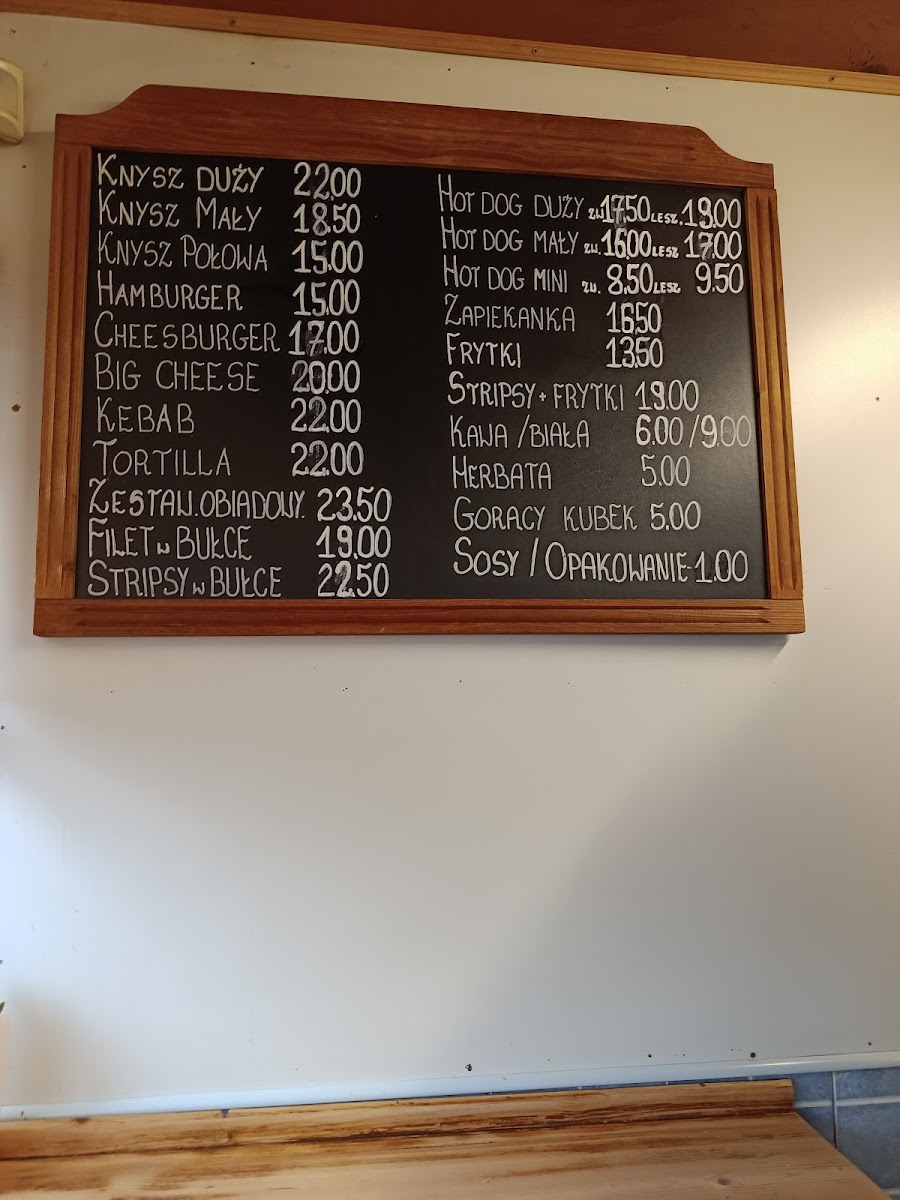 KNYSZ DUŻY 22.00
KNYSZ MAŁY 18.50
KNYSZ POŁOWA 15.00
HAMBURGER 15.00
CHEESBURGER 17.00
BIG CHEESE 20.00
KEBAB 22.00
TORTILLA 22.00
ZESTAW.OBIADOWY. 23.50
FILET W BUŁCE 19.00
STRIPSY W BUŁCE 22.50
HOT DOG DUŻY ZW. 17.50 LESZ. 19.00
HOT DOG MAŁY ZW. 16.00 LESZ 17.00
HOT DOG MINI ZW. 8.50 LESZ 9.50
ZAPIEKANKA 16.50
FRYTKI 13.50
STRIPSY + FRYTKI 19.00
KAWA /BIAŁA 6.00 /9.00
HERBATA 5.00
GORĄCY KUBEK 5.00
SOSY / OPAKOWANIE-1.00